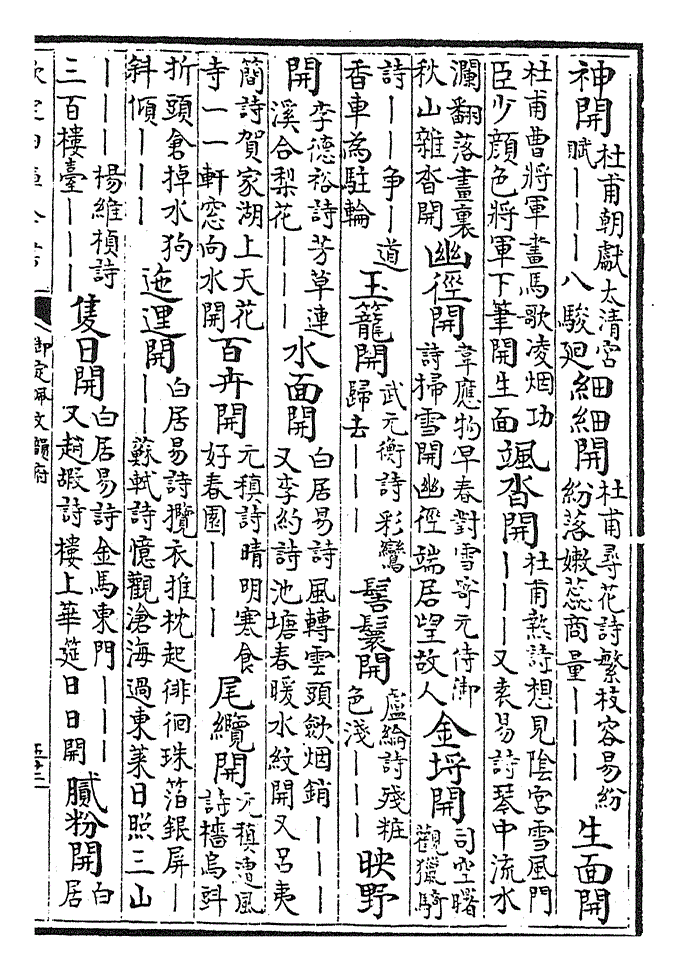 神開杜甫朝獻太清宮賦｜｜｜八駿廻細細開杜甫尋花詩繁枝容易紛紛落嫩蕊商量｜｜｜生面開
杜甫曹將軍畫馬歌凌烟功臣少顔色將軍下筆開生面颯沓開杜甫熱詩想見陰宮雪風門｜｜｜又袁易詩琴中流水
瀾翻落畫裏秋山雜沓開幽徑開韋應物早春對雪寄元侍御詩掃雪開幽徑端居望故人金埒開司空曙觀獵騎
詩｜｜爭｜道香車為駐輪玉籠開武元衡詩彩鸞歸去｜｜｜髻鬟開盧綸詩殘粧色淺｜｜｜映野
開李德裕詩芳草連溪合梨花｜｜｜水面開白居易詩風轉雲頭斂烟銷｜｜｜又李約詩池塘春暖水紋開又呂夷
簡詩賀家湖上天花寺一一軒窓向水開百卉開元稹詩晴明寒食好春園｜｜｜尾纜開元稹遭風詩檣烏斜
折頭倉掉水狗斜傾｜｜｜迤邐開白居易詩攬衣推枕起徘徊珠箔銀屏｜｜｜蘇軾詩憶觀滄海過東萊日照三山
｜｜｜楊維楨詩三百樓臺｜｜｜隻日開白居易詩金馬東門｜｜｜又趙嘏詩樓上華筵日日開膩粉開白居
御定佩文韻府